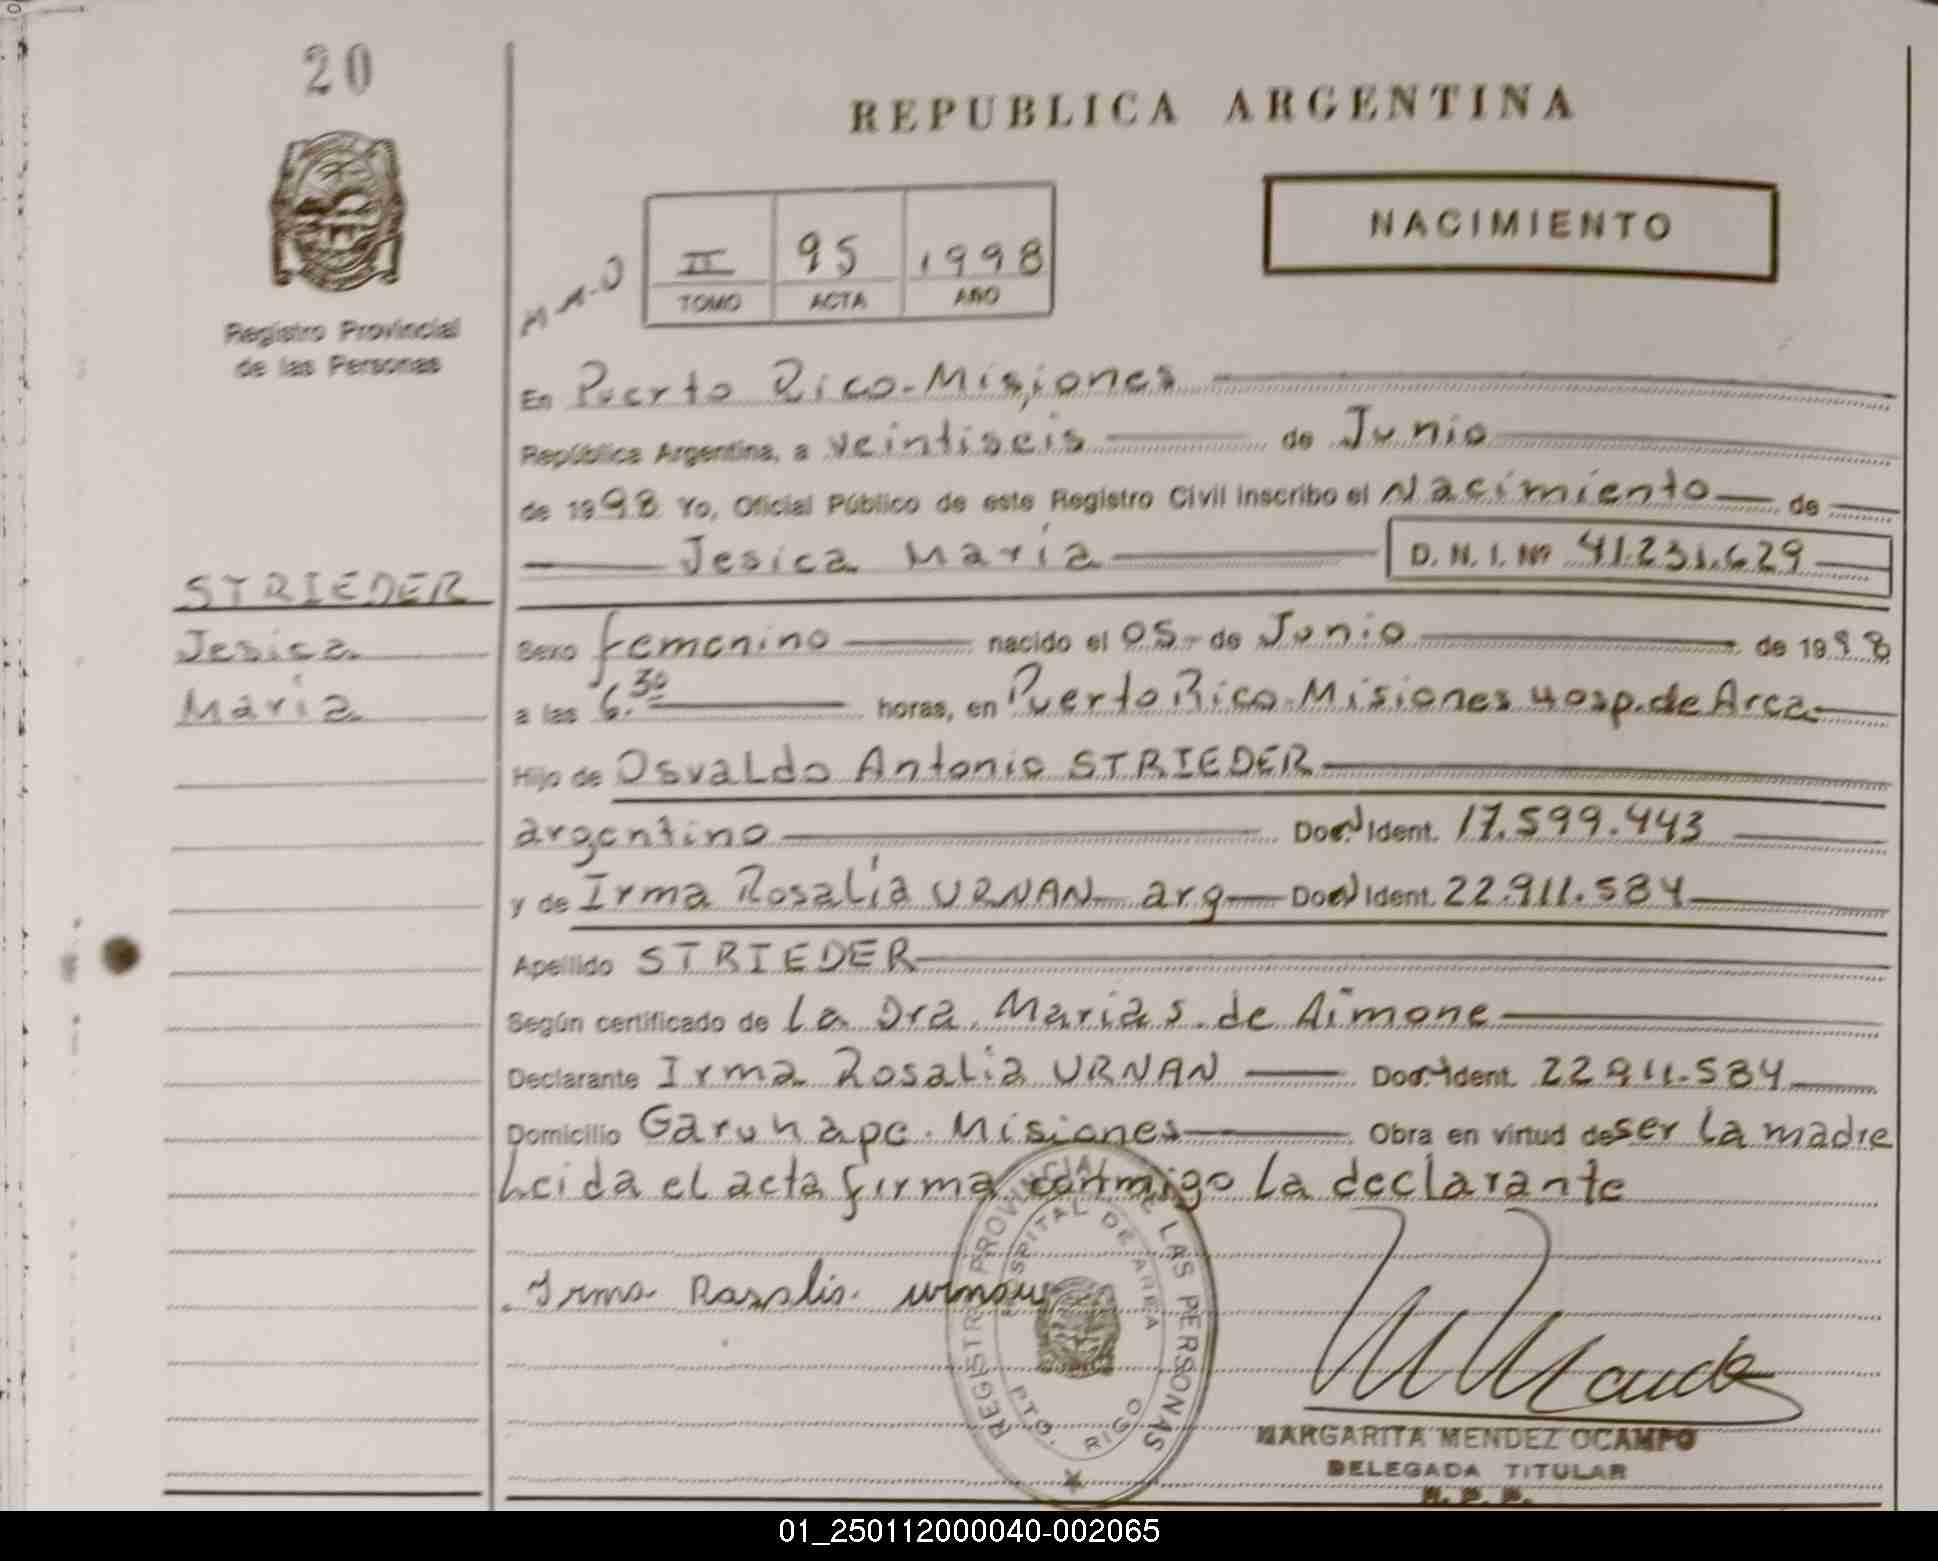 20
REPUBLICA ARGENTINA
NACIMIENTO
II 95 1998
TOMO ACTA AÑO
Registro Provincial
de las Personas
En Puerto Rico-Misiones
República Argentina, a veintiseis de Junio
de 1998 Yo, Oficial Público de este Registro Civil inscribo el Nacimiento de
Jesica María D.N.I. Nº 41.231.629
STRIEDER
Jesica
María
Sexo femenino nacido el 05- de Junio de 1998
a las 6.30 horas, en Puerto Rico-Misiones Hosp. de Area
Hijo de Osvaldo Antonio STRIEDER
argentino Doc. Ident. 17.599.443
y de Irma Rosalía URNAN arg Doc. Ident. 22.911.584
Apellido STRIEDER
Según certificado de La Dra. María S. de Aimone
Declarante Irma Rosalía URNAN Doc. Ident. 22.911.584
Domicilio Garuhape. Misiones Obra en virtud de ser la madre
Leida el acta firma conmigo la declarante
Irma Rosalia urnau
REGISTRO PROVINCIAL DE LAS PERSONAS
HOSPITAL DE AREA
PTO. RICO
MARGARITA MENDEZ OCAMPO
DELEGADA TITULAR
R. P. P.
01_250112000040-002065